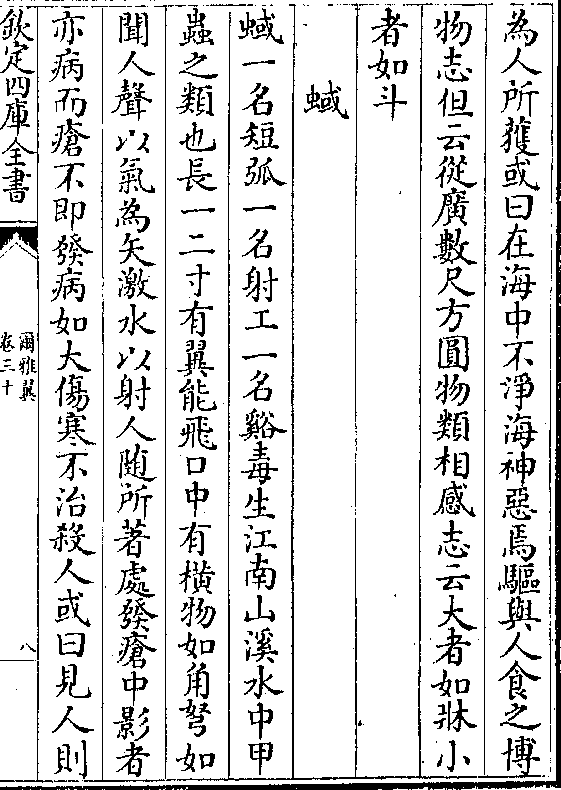 為人所獲或曰在海中不淨海神惡焉驅與人食之博
物志但云從廣數尺方圓物類相感志云大者如牀小
者如斗
蜮
蜮一名短弧一名射工一名谿毒生江南山溪水中甲
蟲之類也長一二寸有翼能飛口中有橫物如角弩如
聞人聲以氣為矢激水以射人随所著處發瘡中影者
亦病而瘡不即發病如大傷寒不治殺人或曰見人則
欽定四庫全書
爾雅翼
卷三十
八